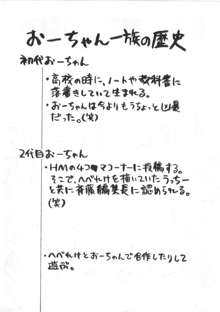 おーちゃん一族の歴史
初代おーちゃん
・高校の時に、ノートや教科書に
落書きしていて生まれる。
・おーちゃんは今よりもうちょっと凶悪
だった。(笑)
2代目おーちゃん
・HMの4コマコーナーに投稿する。
そこで、へべれけを描いていたうっちー
と共に斉藤編集長に認められる。
(笑)
・へべれけとおーちゃんで合作したりして
遊ぶ。